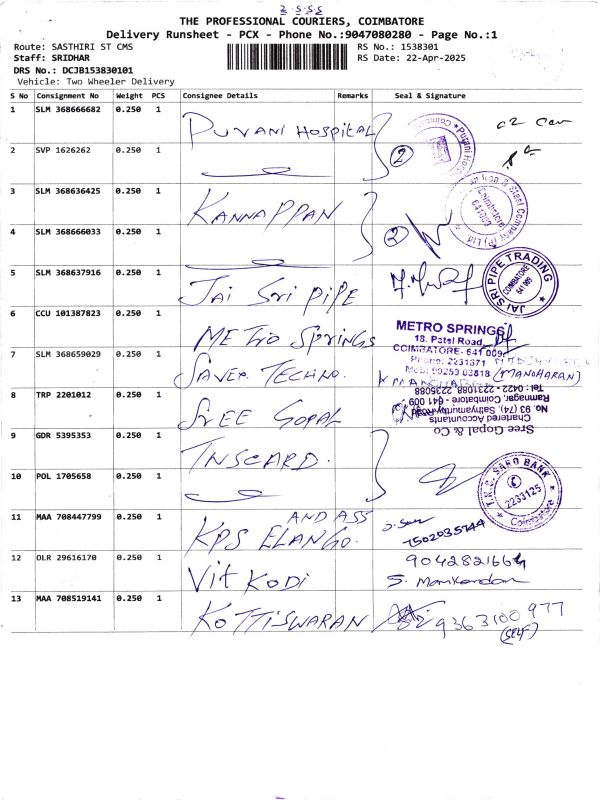 THE PROFESSIONAL COURIERS, COIMBATORE
Delivery Runsheet - PCX - Phone No.:9047080280 - Page No.:1
Route: SASTHIRI ST CMS
RS No.: 1538301
Staff: SRIDHAR
RS Date: 22-Apr-2025
DRS No.: DCJB153830101
Vehicle: Two Wheeler Delivery
S No Consignment No Weight PCS Consignee Details Remarks Seal & Signature
1 SLM 368666682 0.250 1 PURANI HOSPITAL
2 SVP 1626262 0.250 1 2
3 SLM 368636425 0.250 1 KANNAPPAN
4 SLM 368666033 0.250 1 2
5 SLM 368637916 0.250 1 JAI SRI PIPE
JAI SRI PIPE TRADING
COIMBATORE
641 009
6 CCU 101387823 0.250 1 METRO SPRINGS
METRO SPRINGS
18. Patel Road,
COIMBATORE- 641 009
7 SLM 368659029 0.250 1 SAVER TECHNO.
(MANOHARAN)
8 TRP 2201012 0.250 1 SREE GOPAL
Sree Gopal & Co
Chartered Accountants
No. 93 (74), Sathyamurthy Road
Ramnagar, Coimbatore - 641 009
Tel : 0422 - 2231088, 2236088
9 GDR 5395353 0.250 1 TNSCARD.
10 POL 1705658 0.250 1
T.N.C. SARD BANK
2233125
Coimbatore
11 MAA 708447799 0.250 1 AND ASS
KPS ELANGO.
7502035744
12 OLR 29616170 0.250 1 Vit KODI
9042821664
S. Manikandan
13 MAA 708519141 0.250 1 KOTTISWARAN
9363100977
(SELF)